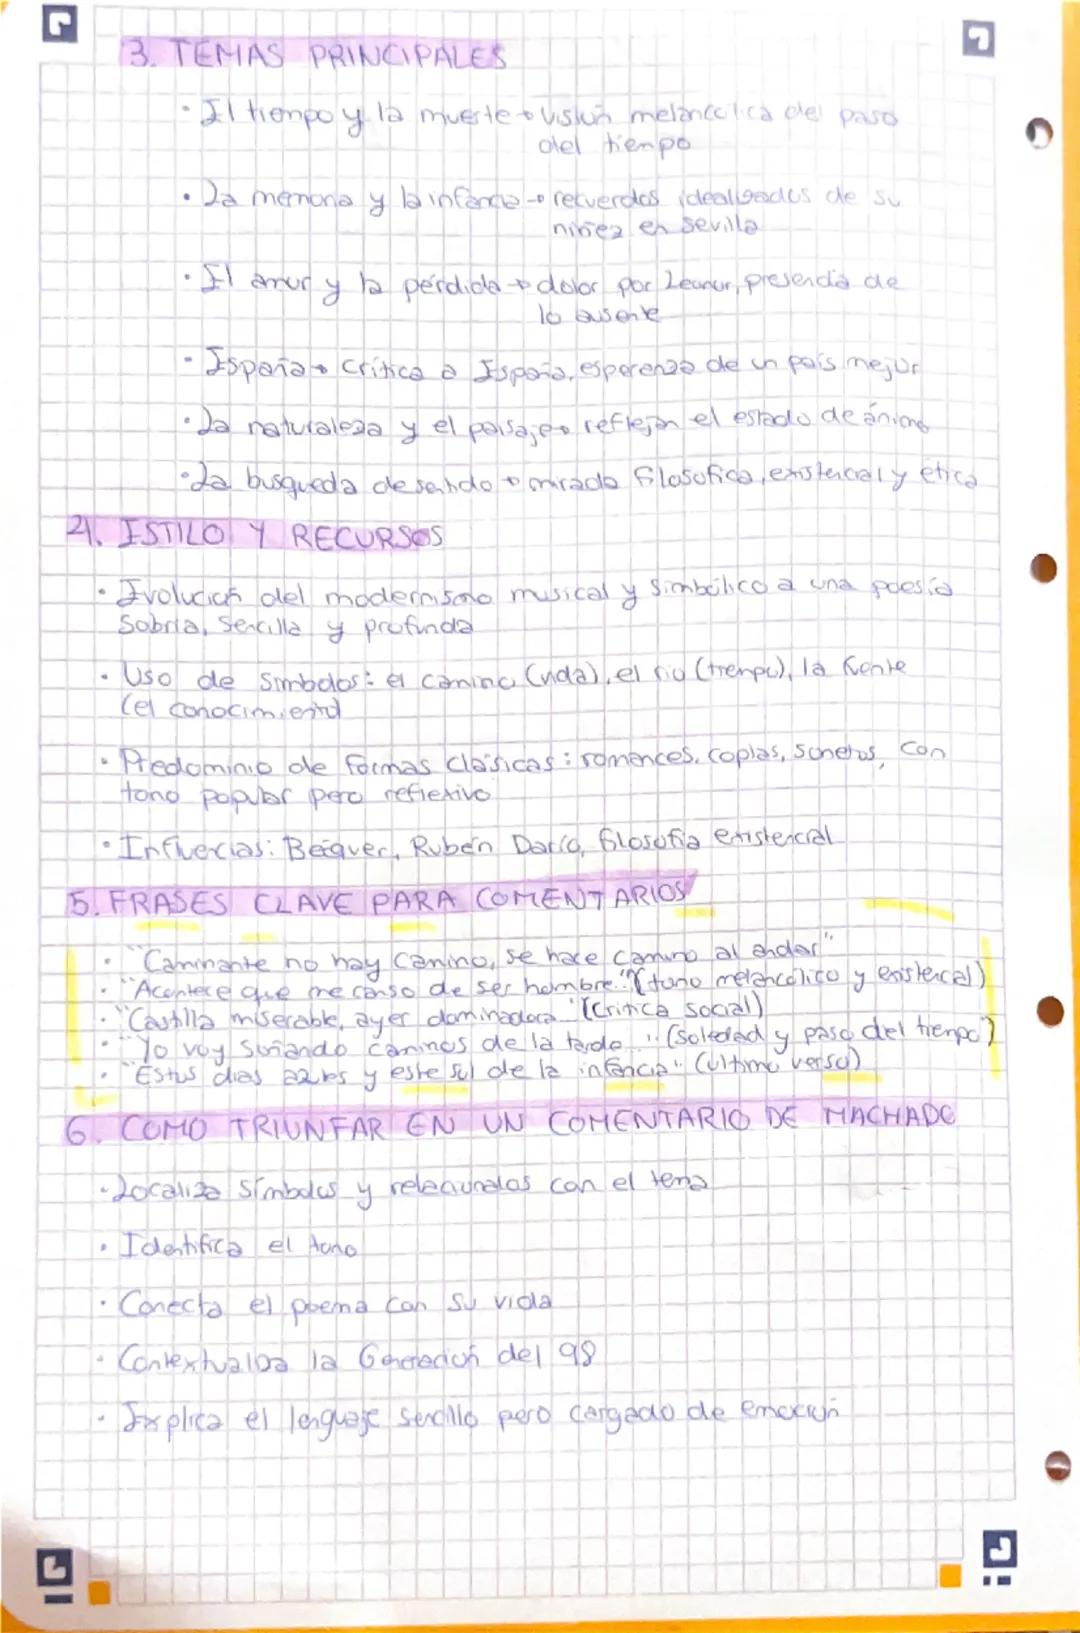 3. TEMAS PRINCIPALES
· El tiempo y la muerte → visión melancólica del paso
del tiempo
· La memoria y la infancia → recuerdos idealizados de su
niñez en Sevilla
· El amor y la pérdida → dolor por Leonor, presencia de
lo ausente
· España → Crítica a España, esperanza de un país mejor
· La naturaleza y el paisaje → reflejan el estado de ánimo
· La busqueda de sentido → mirada filosofica, existencial y ética
4. ESTILO Y RECURSOS
· Evolución del modernismo musical y simbólico a una poesía
sobria, sencilla y profunda
· Uso de simbolos: el camino (vida), el rio (tiempo), la fuente
(el conocimiento)
· Predominio de formas clásicas: romances, coplas, sonetos, con
tono popular pero reflexivo
· Influencias: Becquer, Rubén Darío, filosofía existencial
5. FRASES CLAVE PARA COMENTARIOS
· "Caminante no hay camino, se hace camino al andar"
· "Acontece que me canso de ser hombre" (tono melancólico y existencial)
· "Castilla miserable, ayer dominadora" (Crítica social)
· "Yo voy soñando caminos de la tarde" (Soledad y paso del tiempo)
· "Estos dias azules y este sol de la infancia" (último verso)
6. COMO TRIUNFAR EN UN COMENTARIO DE MACHADO
· Localiza símbolos y relacionalos con el tema
· Identifica el tono
· Conecta el poema con su vida
· Contextualiza la Generación del 98
· Explica el lenguaje sencillo pero cargado de emoción